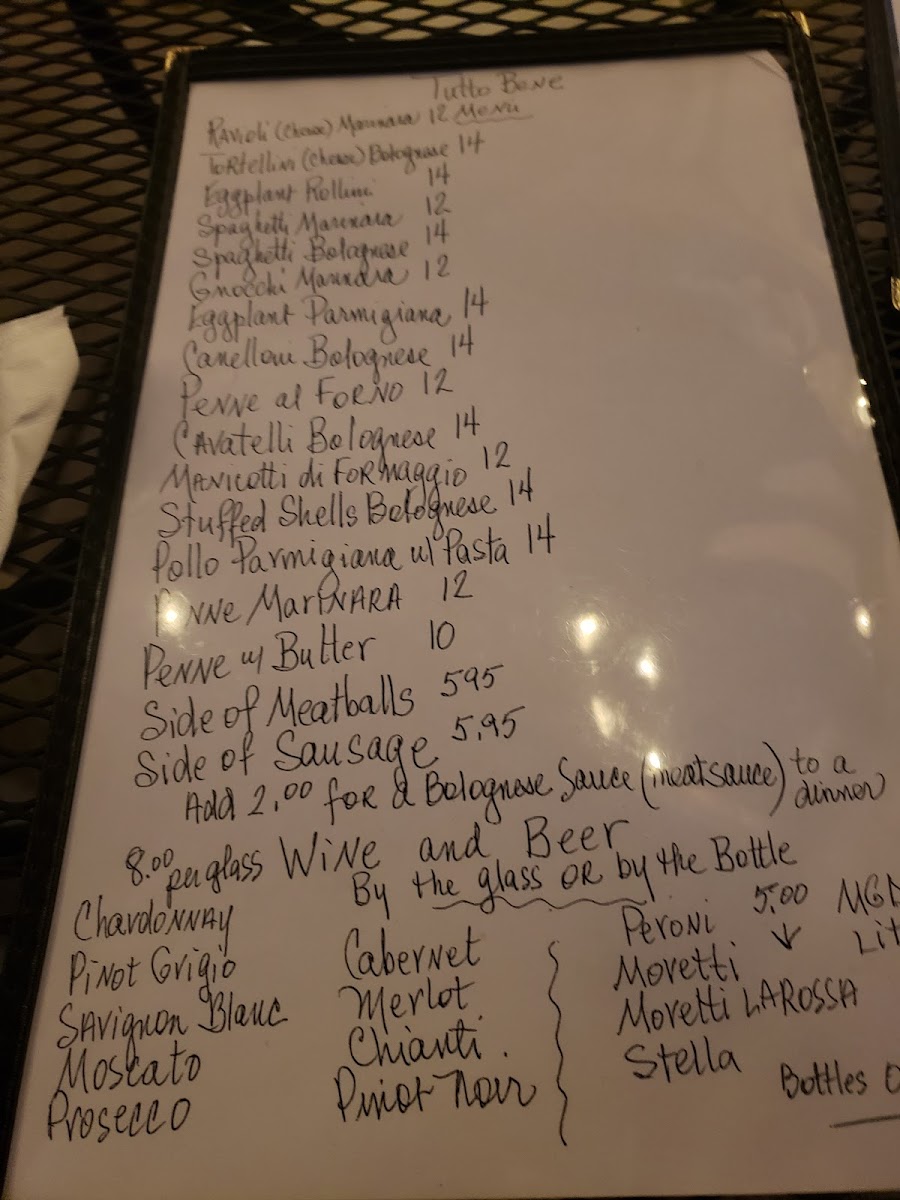 Tutto Bene
Menu
Ravioli (Cheese) Marinara 12
Tortellini (Cheese) Bolognese 14
Eggplant Rollini 14
Spaghetti Marinara 12
Spaghetti Bolognese 14
Gnocchi Marinara 12
Eggplant Parmigiana 14
Canelloni Bolognese 14
Penne al Forno 12
Cavatelli Bolognese 14
Manicotti di Formaggio 12
Stuffed Shells Bolognese 14
Pollo Parmigiana w/ Pasta 14
Penne Marinara 12
Penne w/ Butter 10
Side of Meatballs 595
Side of Sausage 5.95
Add 2.00 for a Bolognese Sauce (meatsauce) to a dinner
8.00 per glass Wine and Beer
By the glass or by the Bottle
Chardonnay
Pinot Grigio
Savignon Blanc
Moscato
Prosecco
Cabernet
Merlot
Chianti.
Pinot Noir
Peroni 5.00
Moretti
Moretti LaRossa
Stella
MGD
Lit
Bottles O